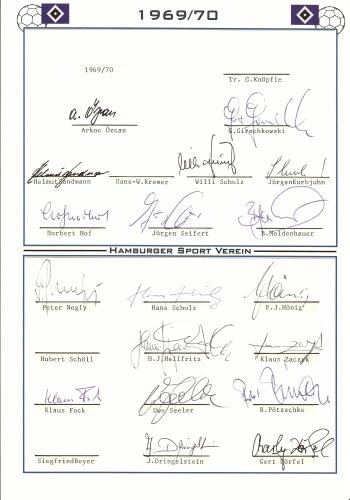 1969/70
1969/70
Tr. G.Knöpfle
Arkoc Özcan
G.Girschkowski
HelmutSandmann Hans-W.Kremer Willi Schulz JürgenKurbjuhn
Norbert Hof Jürgen Seifert B.Moldenhauer
HAMBURGER SPORT VEREIN
Peter Nogly Hans Schulz F.J.Hönig
Hubert Schöll H.J.Hellfritz Klaus Zaczyk
Klaus Fock Uwe Seeler R.Pötzschke
SiegfriedBeyer J.Dringelstein Gert Dörfel